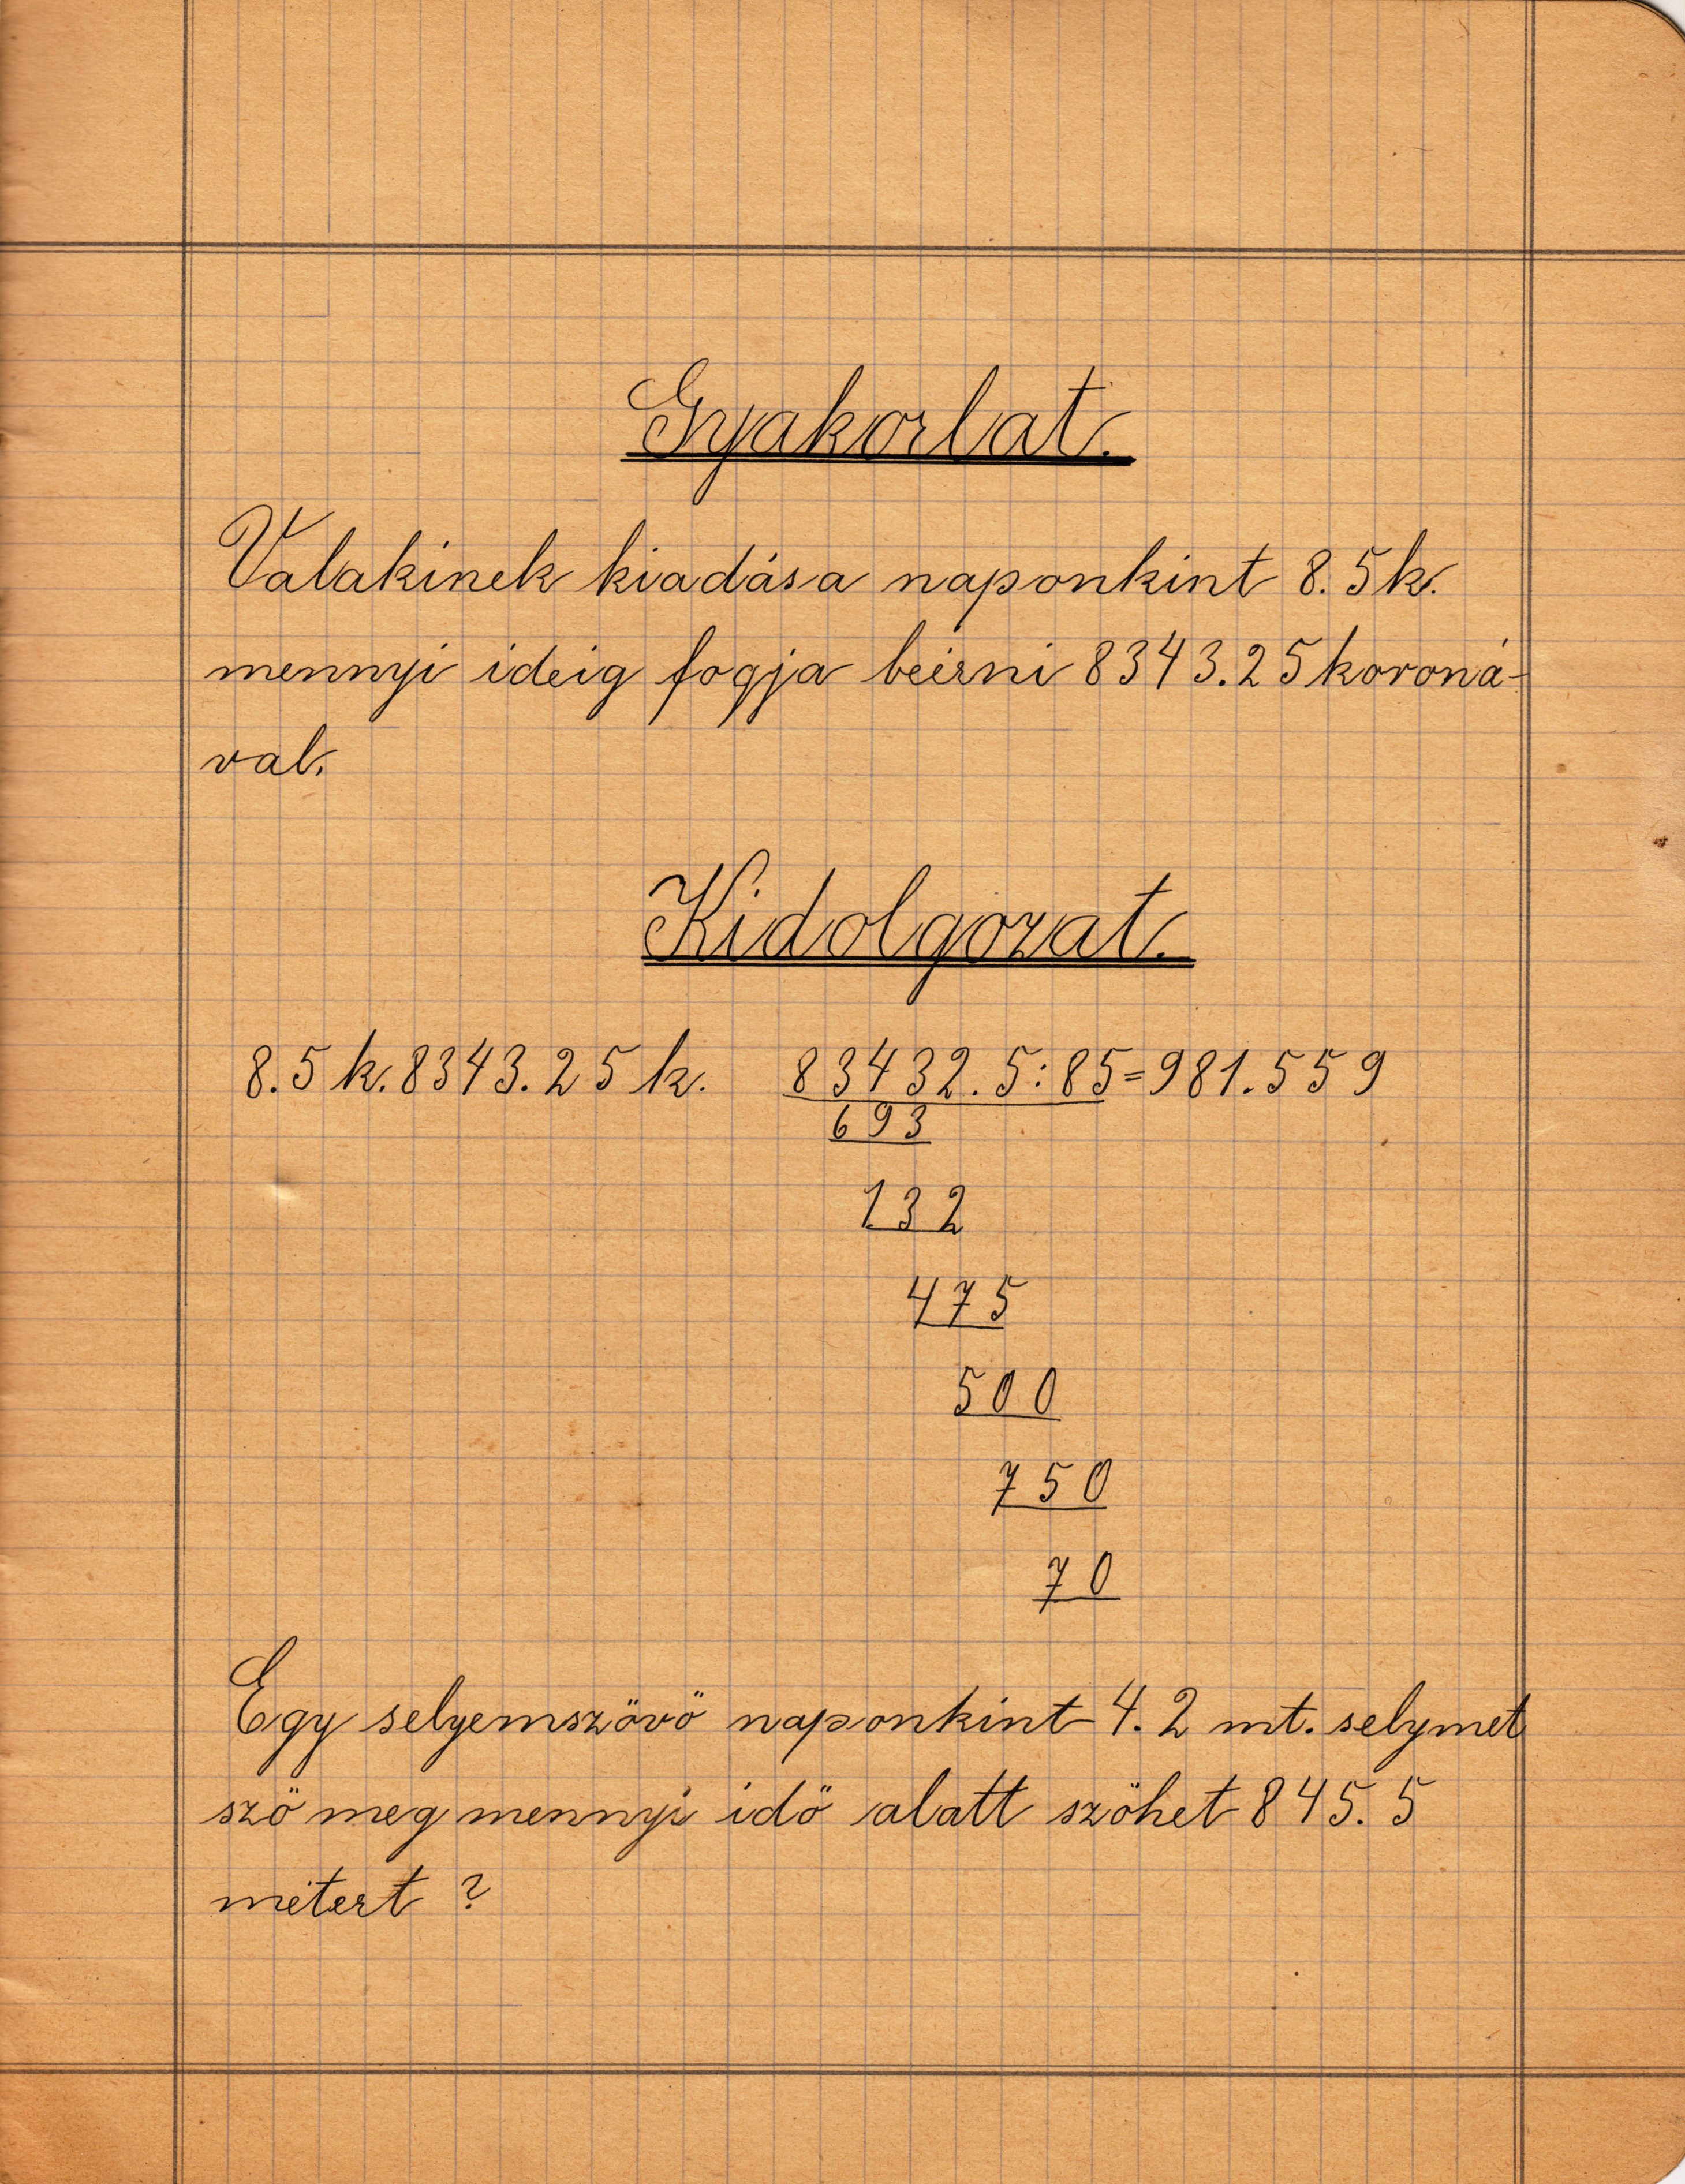 Gyakorlat.
Valakinek kiadása naponkint 8.5k.
mennyi ideig fogja beérni 8343.25 koroná-
val.
Kidolgozat.
8.5 k. 8343.25 k. 83432.5:85=981.559
693
132
475
500
750
70
Egy selyemszövö naponkint 4.2 mt. selymet
szö meg mennyi idö alatt szöhet 845.5
métert ?